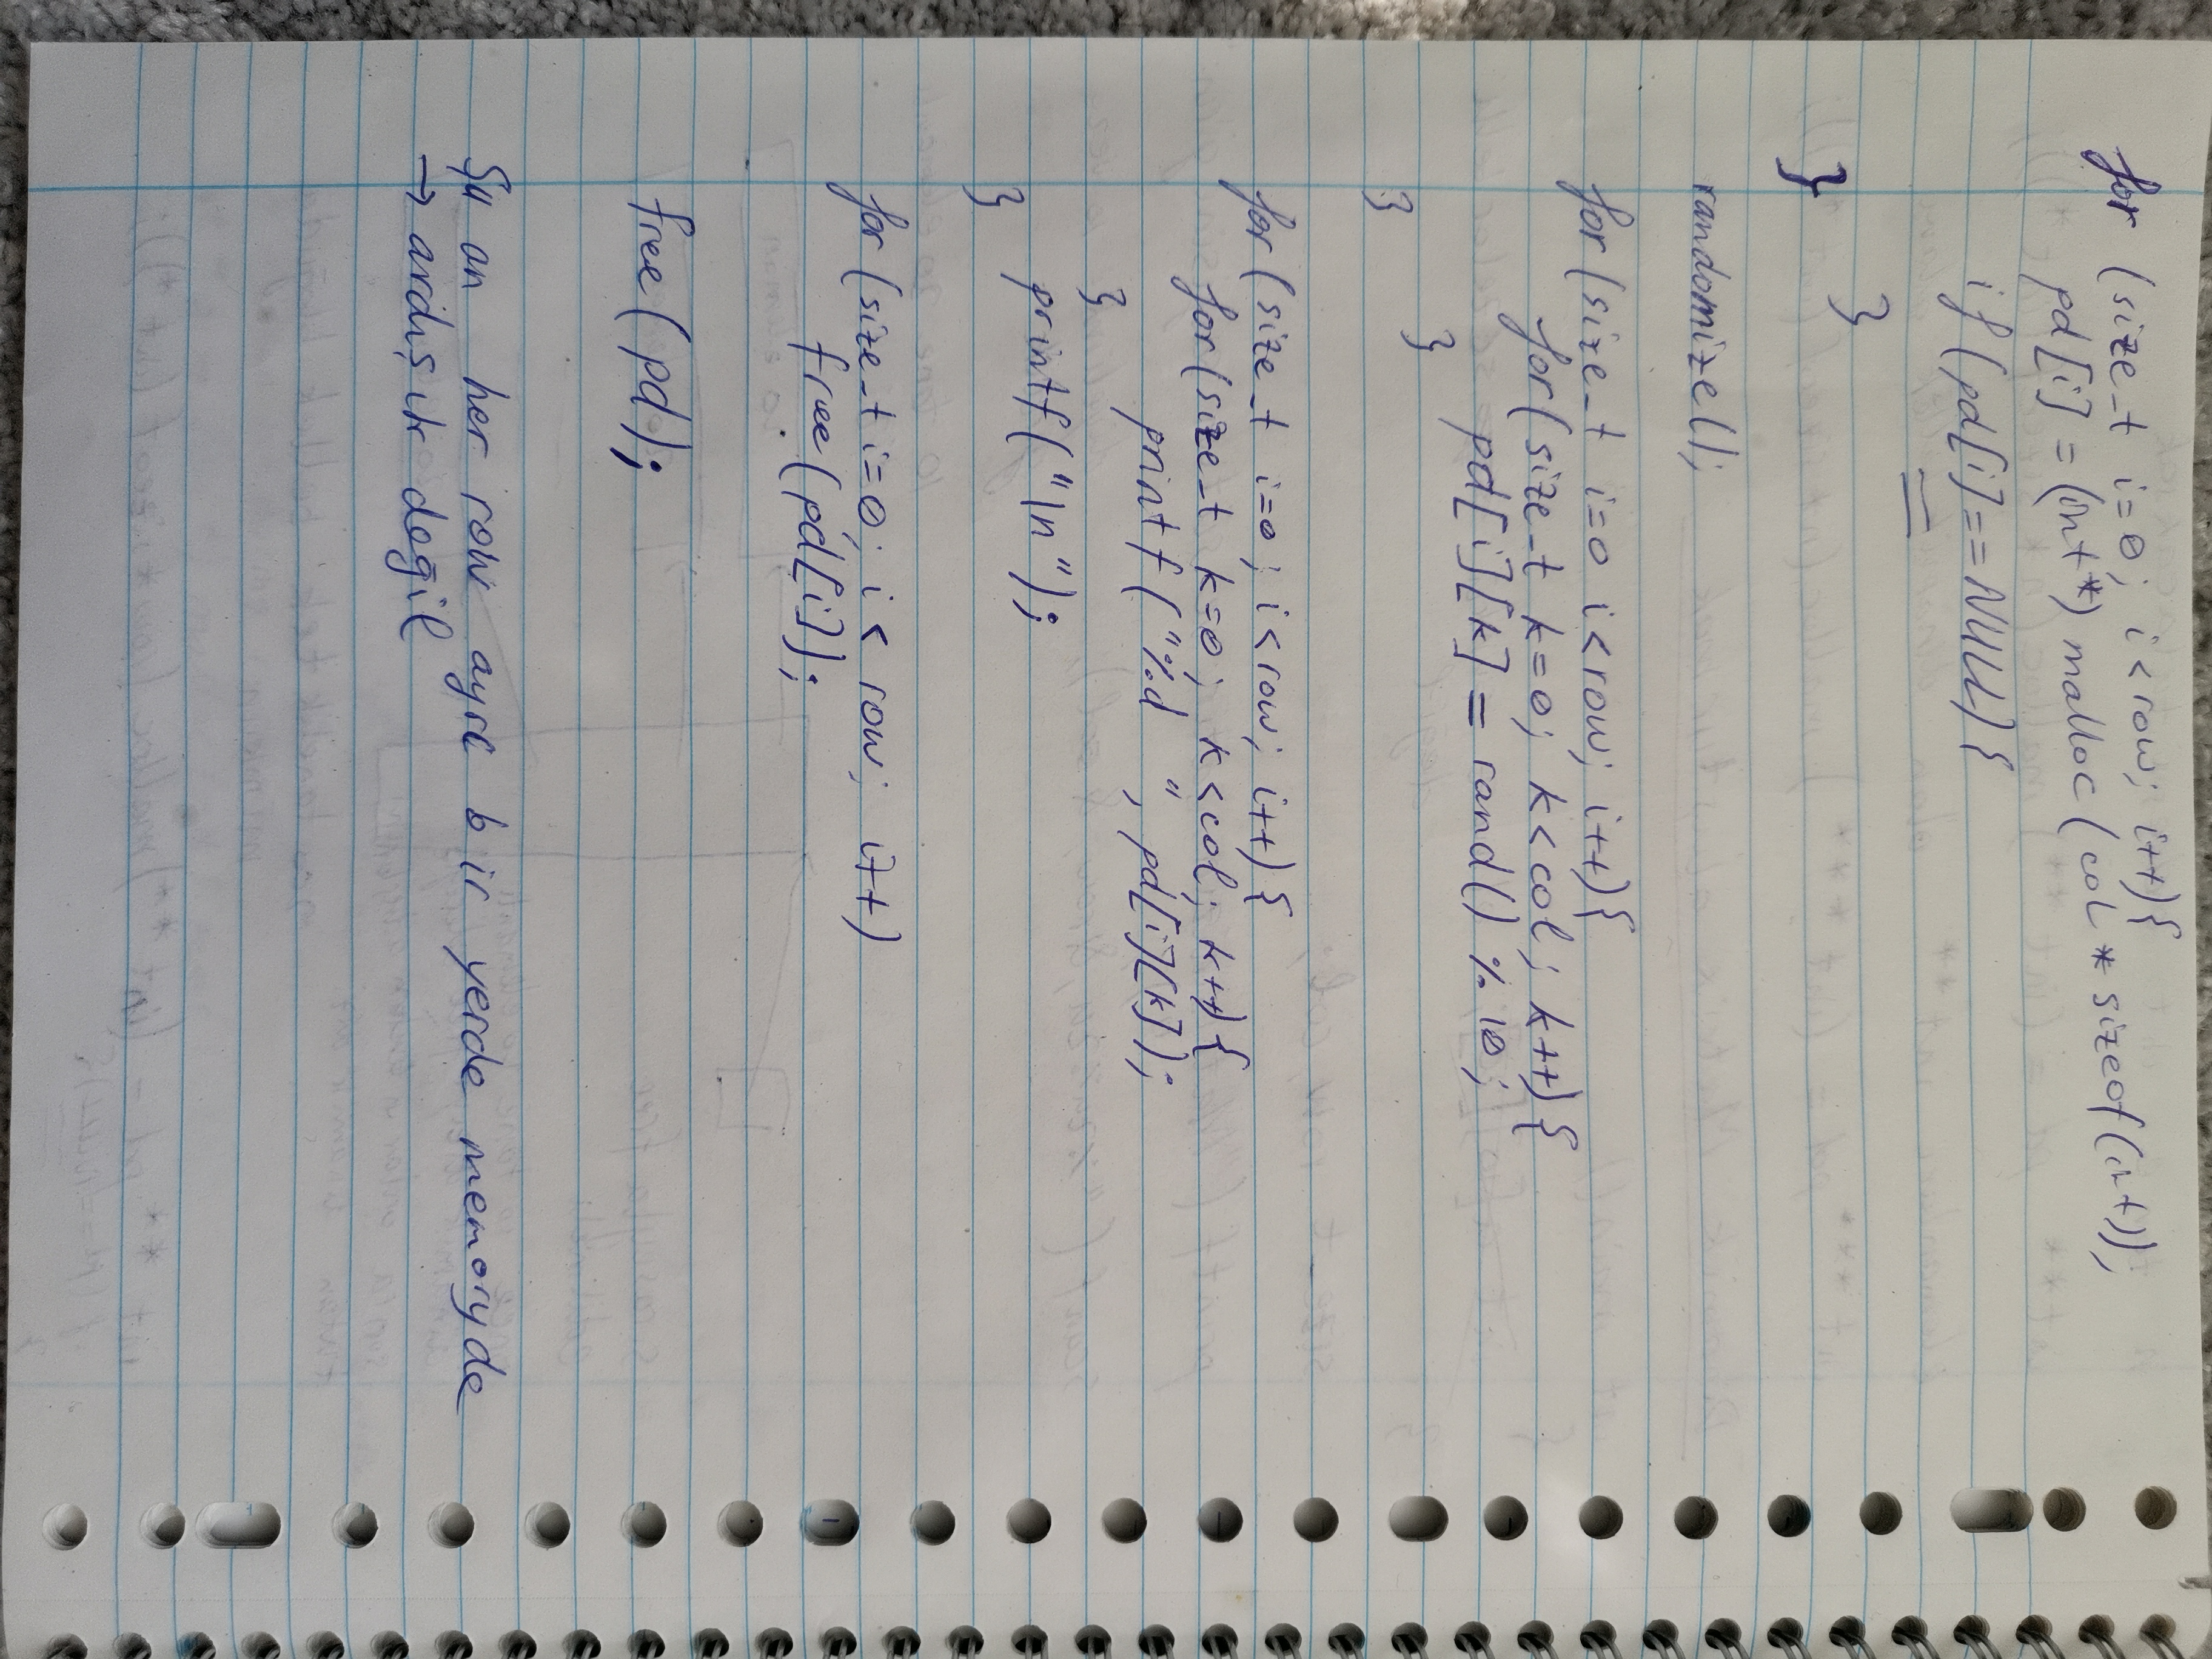 for (size_t i=0; i<row; i++){
pd[i] = (int*) malloc(col * sizeof(int));
if(pd[i]==NULL){
}
}
randomize();
for(size_t i=0 i<row; i++){
for(size_t k=0; k<col; k++){
pd[i][k] = rand() % 10;
}
}
for(size_t i=0; i<row; i++){
for(size_t k=0; k<col; k++){
printf("%d ", pd[i][k]);
}
printf("\n");
}
for(size_t i=0; i< row; i++)
free(pd[i]);
free(pd);
Şu an her row ayrı bir yerde memoryde
→ ardışık değil